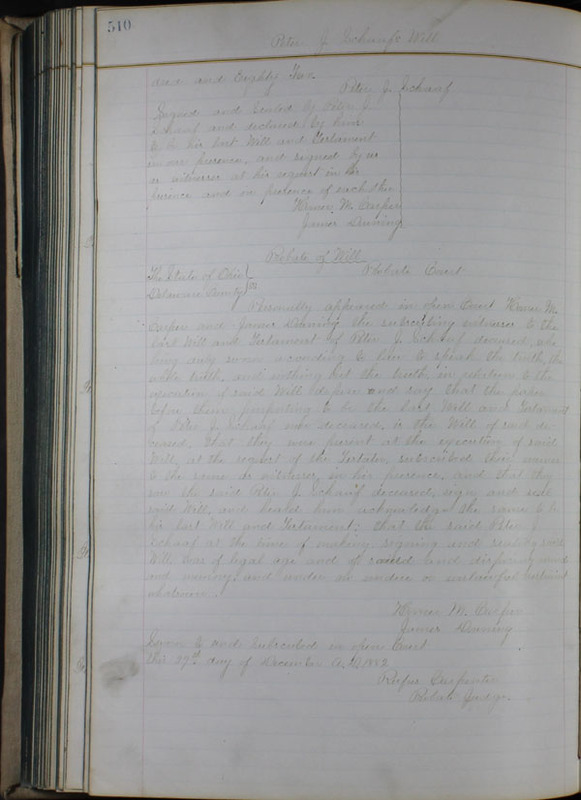 510
Peter J. Schaaf's Will
dred and Eighty Two.
Peter J. Schaaf
Signed and Sealed by Peter J.
Schaaf and declared by him
to be his last Will and Testament
in our presence, and signed by us
as witnesses at his request in his
presence and in presence of each other
Homer M. Carper
James Dunning
Probate of Will
The State of Ohio } Probate Court
Delaware County } ss
Personally appeared in open Court Homer M.
Carper and James Dunning the subscribing witnesses to the
last Will and Testament of Peter J. Schaaf deceased, who
being duly sworn according to law to speak the truth, the
whole truth, and nothing but the truth, in relation to the
execution of said Will depose and say that the paper
before them purporting to be the last Will and Testament
of Peter J. Schaaf now deceased, is the Will of said de-
ceased. That they were present at the execution of said
Will, at the request of the Testator, subscribed their names
to the same as witnesses, in his presence, and that they
saw the said Peter J. Schaaf deceased, sign and seal
said Will, and heard him acknowledge the same to be
his last Will and Testament; that the said Peter J.
Schaaf at the time of making, signing and sealing said
Will was of legal age and of sound and disposing mind
and memory, and under no undue or unlawful restraint
whatsoever.
Homer M. Carper
James Dunning
Sworn to and subscribed in open Court
this 29th day of December A.D. 1882
Rufus Carpenter
Probate Judge.